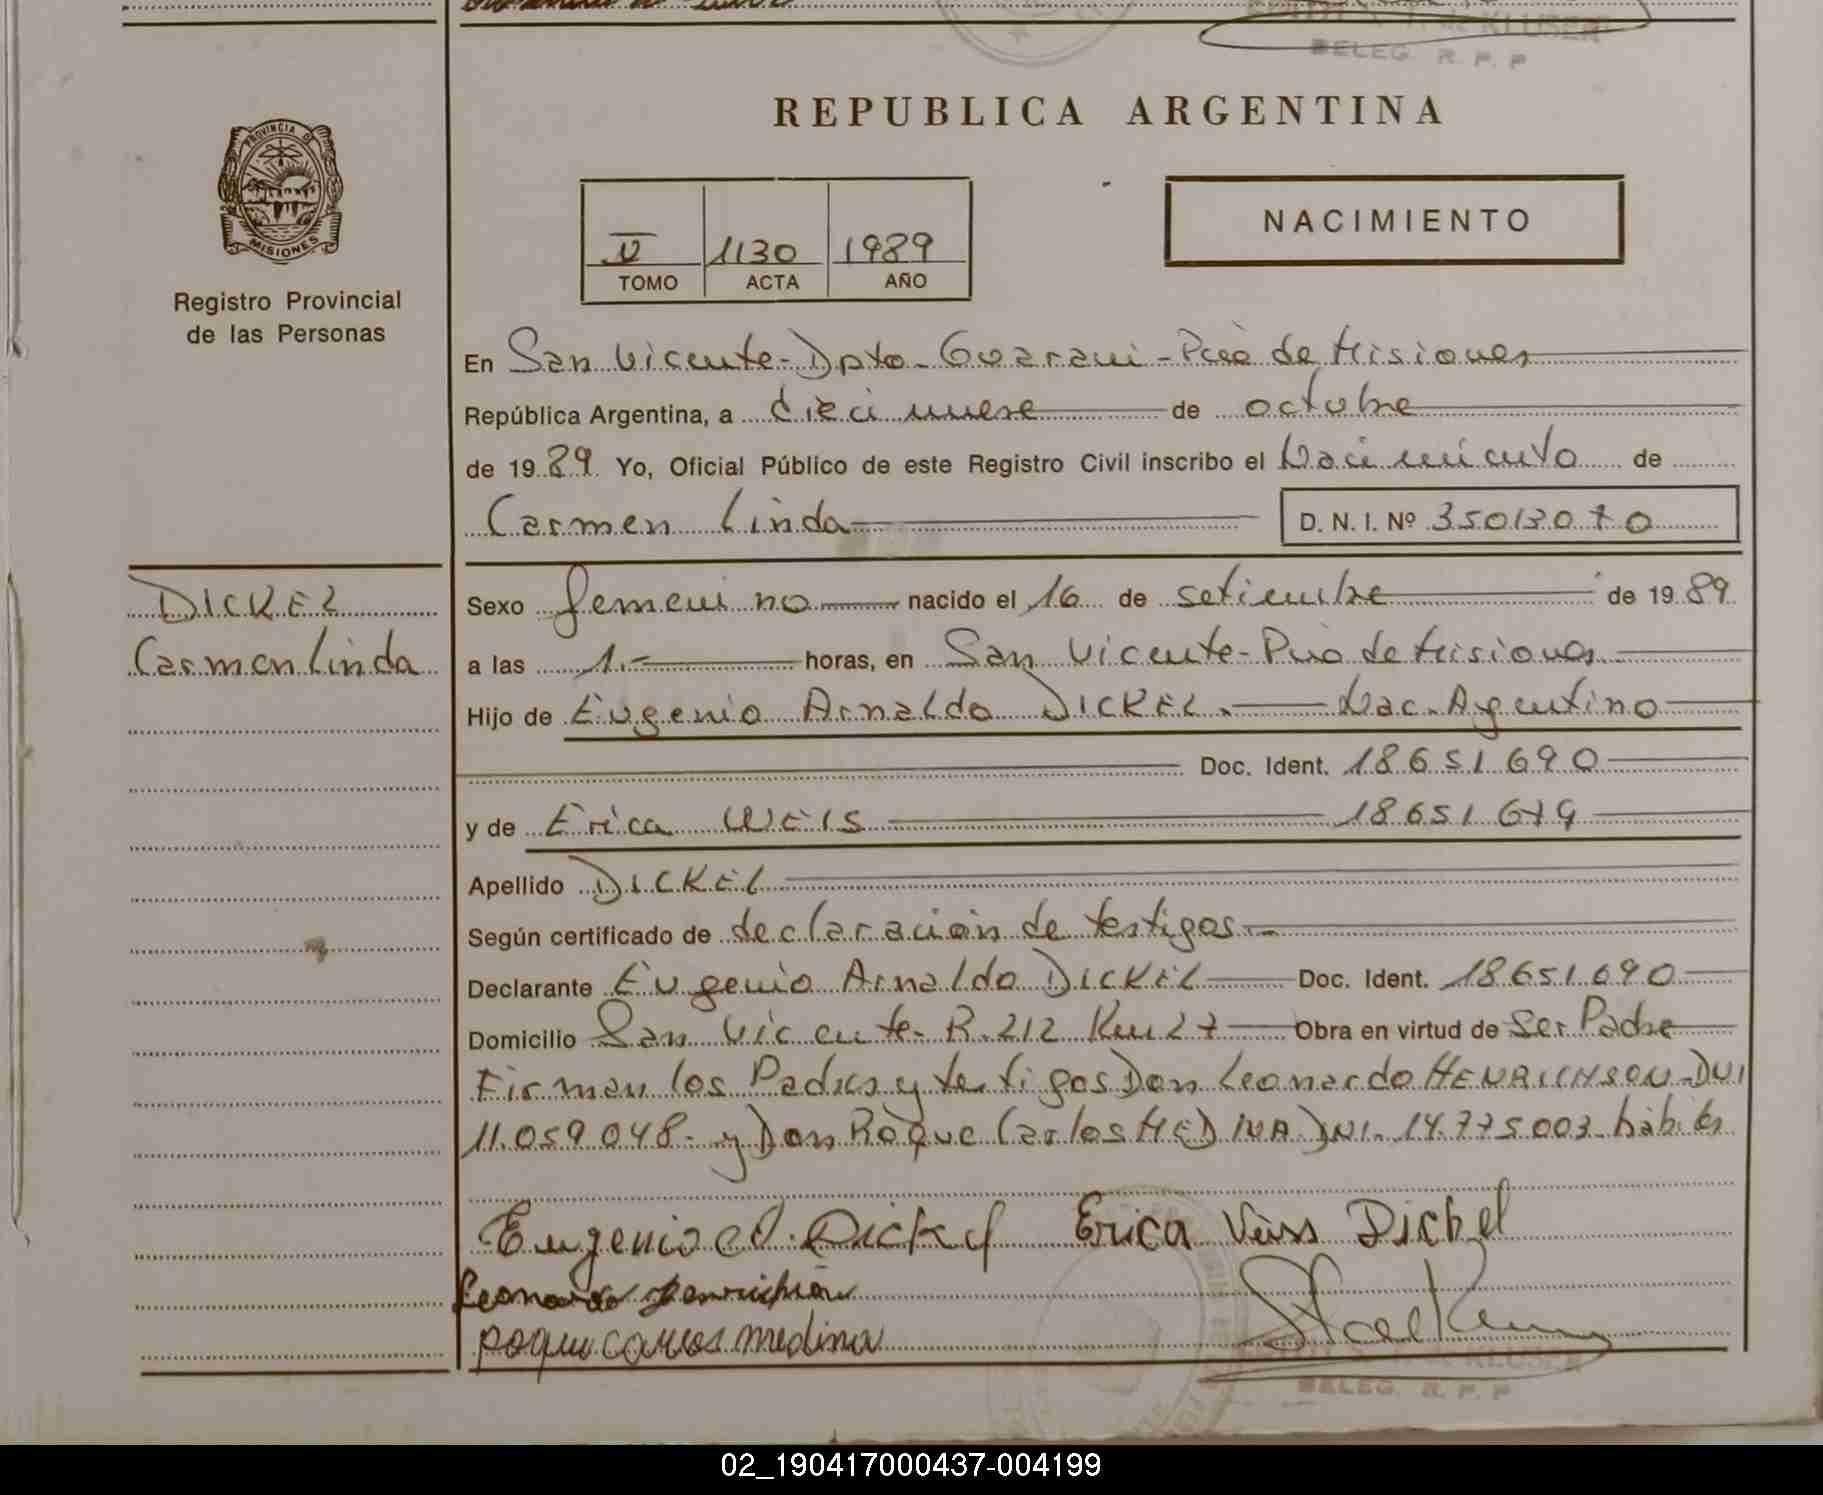 KLUSER
DELEG. R. P. P
REPUBLICA ARGENTINA
PROVINCIA DE
MISIONES
Registro Provincial
de las Personas
V 1130 1989
TOMO ACTA AÑO
NACIMIENTO
En San Vicente - Dpto. Guarani - Pcia de Misiones
República Argentina, a dieci nueve de octubre
de 19 89 Yo, Oficial Público de este Registro Civil inscribo el Nacimiento de
Carmen Linda D. N. I. Nº 35013070
DICKEL
Carmen Linda
Sexo femenino nacido el 16 de setiembre de 19 89
a las 1.- horas, en San Vicente - Pcia de Misiones
Hijo de Eugenio Arnaldo DICKEL.- Nac. Argentino
Doc. Ident. 18651690
y de Erica WEIS 18651679
Apellido DICKEL
Según certificado de declaración de testigos.-
Declarante Eugenio Arnaldo DICKEL Doc. Ident. 18651690
Domicilio San Vicente - R. 212 Km 27 Obra en virtud de Ser Padre
Firman los Padres y testigos Don Leonardo HENRICHSEN - DNI
11.059.048.- y Don Roque Carlos MEDINA DNI. 14.775.003 hábiles
Eugenio A. Dickel Erica Veiss Dickel
Leonardo Henrichsen
Roque Carlos Medina
KLUSER
DELEG. R. P. P
02_190417000437-004199